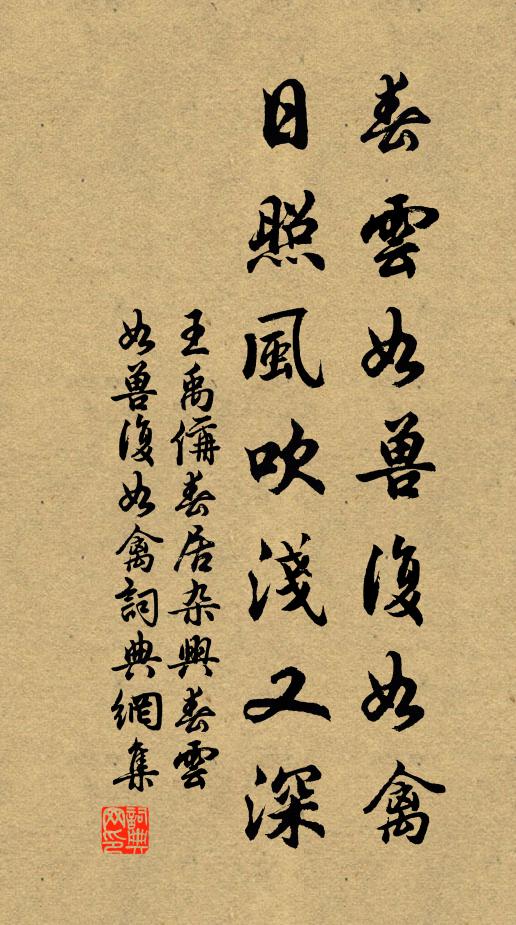 春雲如兽復如禽
日照風吹淺又深
王禹偁春居杂興春雲
如兽復如禽詞典網集
詞典網印